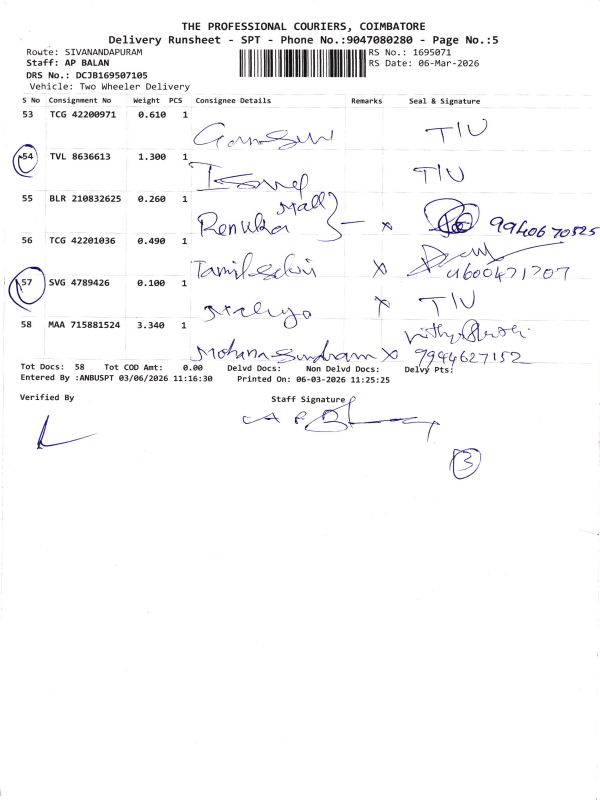 THE PROFESSIONAL COURIERS, COIMBATORE
Delivery Runsheet - SPT - Phone No.:9047080280 - Page No.:5
Route: SIVANANDAPURAM RS No.: 1695071
Staff: AP BALAN RS Date: 06-Mar-2026
DRS No.: DCJB169507105
Vehicle: Two Wheeler Delivery
S No Consignment No Weight PCS Consignee Details Remarks Seal & Signature
53 TCG 42200971 0.610 1
T/U
54 TVL 8636613 1.300 1
T/U
55 BLR 210832625 0.260 1
Renuka x 9940670525
56 TCG 42201036 0.490 1
Tamilselvi x
57 SVG 4789426 0.100 1
x T/U
58 MAA 715881524 3.340 1
Mohana Sundram x 9944627152
Tot Docs: 58 Tot COD Amt: 0.00 Delvd Docs: Non Delvd Docs: Delvy Pts:
Entered By :ANBUSPT 03/06/2026 11:16:30 Printed On: 06-03-2026 11:25:25
Verified By Staff Signature
3